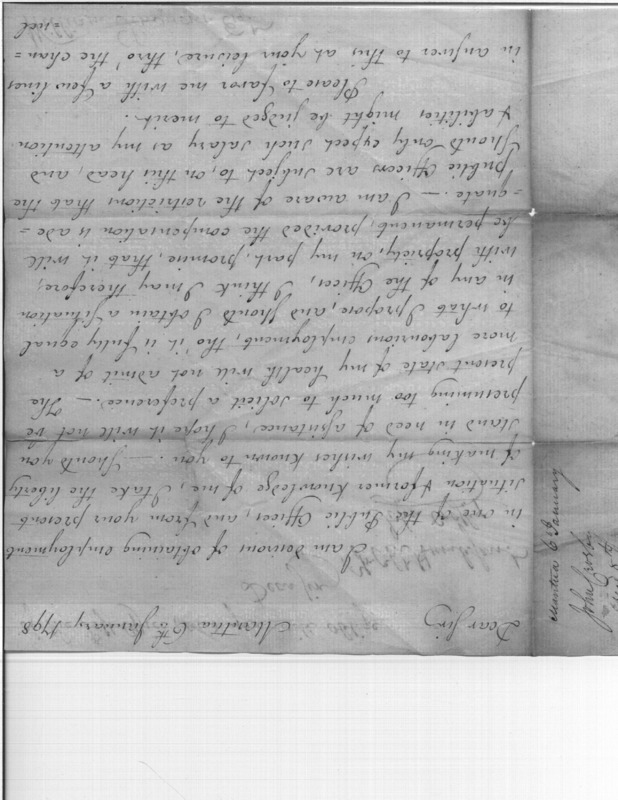 Dear Sir, Mantua 6th January 1798
I am desirous of obtaining employment
in one of the Public Offices, and from your present
situation & former knowledge of me, I take the liberty
of making my wishes known to you. — Should you
stand in need of assistance, I hope it will not be
presuming too much to solicit a preference. — The
present state of my health will not admit of a
more labourious employment, tho' it is fully equal
to what I propose, and, should I obtain a situation
in any of the Offices, I think I may therefore,
with propriety, on my part, promise, that it will
be permanent, provided the compensation is ade=
=quate. — I am aware of the restrictions that the
public Officers are subject to, on this head, and
should only expect such salary as my attention
& abilities might be judged to merit.
Please to favor me with a few lines
in answer to this, at your leisure, thro' the chan=
=nel
Mantua 6 January
John